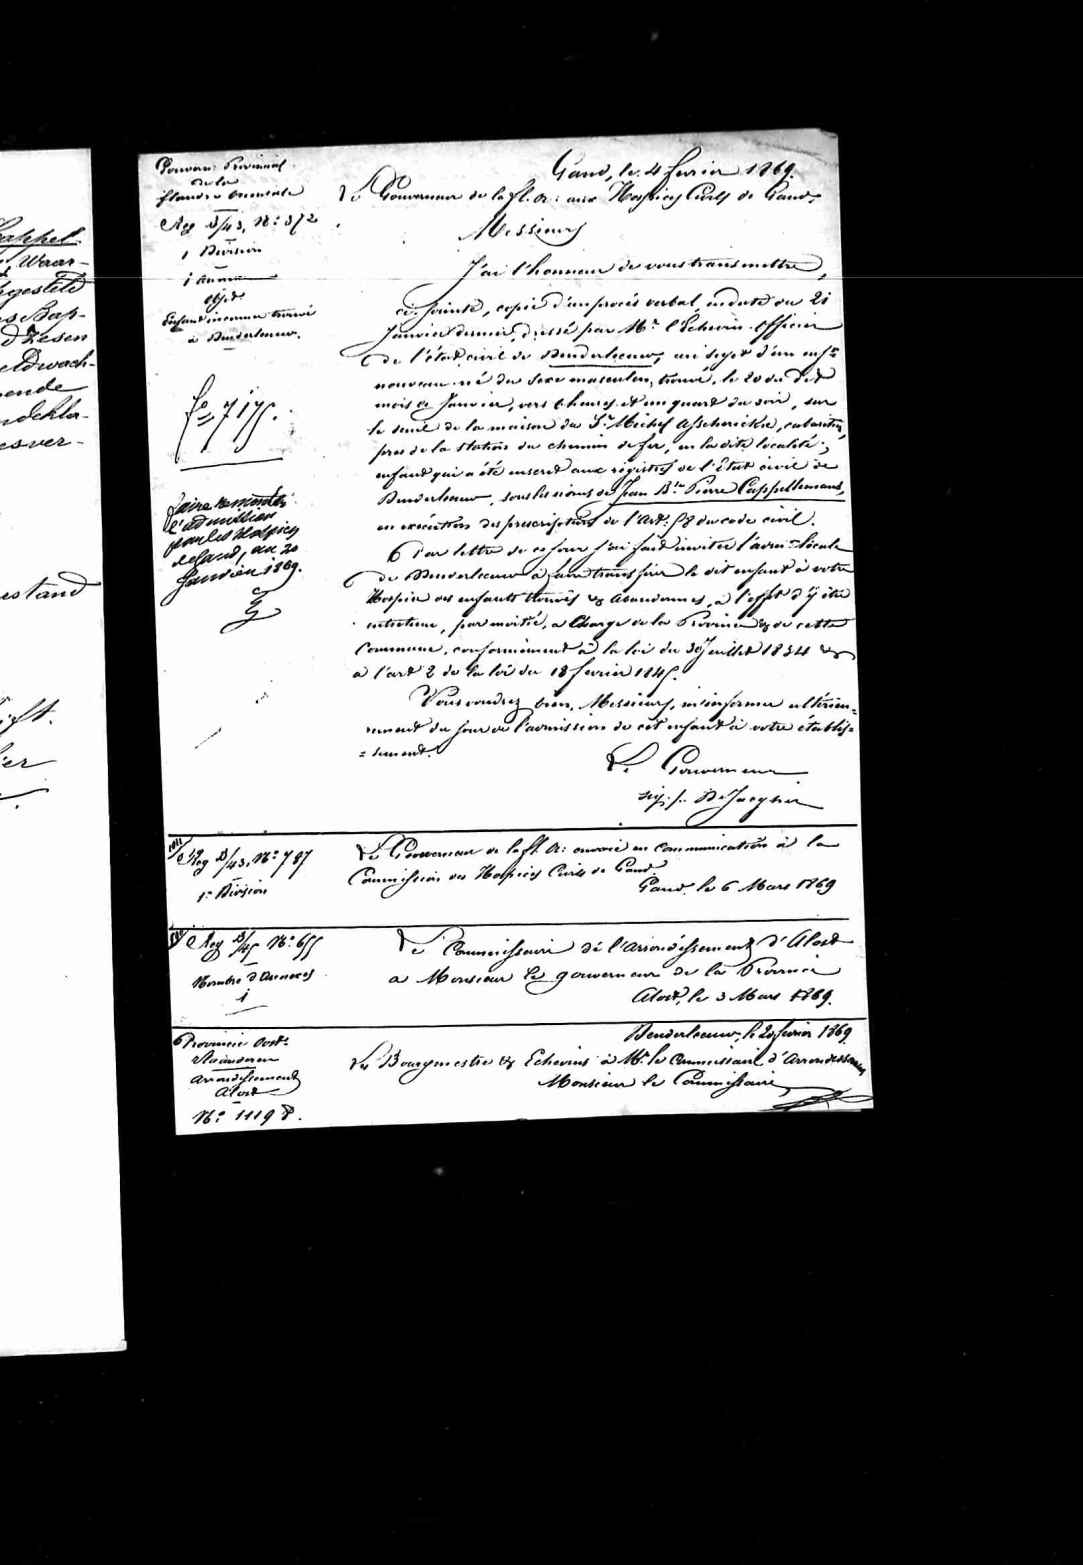 Cappel-
Waar-
gesteld
es Bap-
d Zesen
eldwach-
ende
ndekla-
esver-
estand
ift.
Gouvern: Provincial
de la
flandre Orientale
Reg D/43, N: 372
1 Division
1 annexe
objet
Enfant inconnu trouvé
à Denderleeuw.
fo 7175.
faire remonter
l'admission
par les Hospices
de Gand, au 20
Janvier 1869.
Gand, le 4 fevrier 1869.
Le Gouverneur de la fl. Or: aux Hospices Civils de Gand.
Messieurs
J'ai l'honneur de vous transmettre,
ci-jointe, copie d'un procès verbal en date du 21
Janvier dernier, dressé par Mr l'Echevin officier
de l'état civil de Denderleeuw, au sujet d'un enft
nouveau-né du sexe masculin, trouvé, le 20 du dit
mois de Janvier, vers 6 heures et un quart du soir, sur
le seuil de la maison du Sr Michel Asscherickx, cabaretier,
près de la station du chemin de fer, en la dite localité;
enfant qui a été inscrit aux régistres de l'Etat civil de
Denderleeuw, sous les noms de Jean Bte Pierre Cappellemans,
en exécution des prescriptions de l'Art: 58 du code civil.
Par lettre de ce jour j'ai fait inviter l'admon locale
de Denderleeuw à faire transférer le dit enfant à votre
Hospice des enfants trouvés & abandonnés, à l'effet d'y être
entretenu, par moitié, a charge de la Province & de cette
Commune, conformément à la loi du 30 Juillet 1834 &
à l'art 2 de la loi du 18 fevrier 1845.
Vous voudrez bien, Messieurs, m'informer ultérieu=
rement du jour de l'admission de cet enfant à votre établis=
=sement.
Le Gouverneur
sig: De Jaegher
Reg D/43, N: 787
1e Division
Le Gouverneur de la fl. Or: envoie en communication à la
Commission des Hospices Civils de Gand.
Gand, le 6 Mars 1869
Reg D/45 N: 655
Nombre d'Annexes
1
Le Commissaire de l'arrondissement d'Alost
a Monsieur le gouverneur de la Province
Alost, le 3 Mars 1869.
Provincie Oost-
Vlaanderen
Arrondissement
Alost
N: 1119 D.
Denderleeuw, le 20 fevrier 1869
Les Bourgmestre & Echevins à Mr le Commissaire d'Arrondissement
Monsieur le Commissaire,